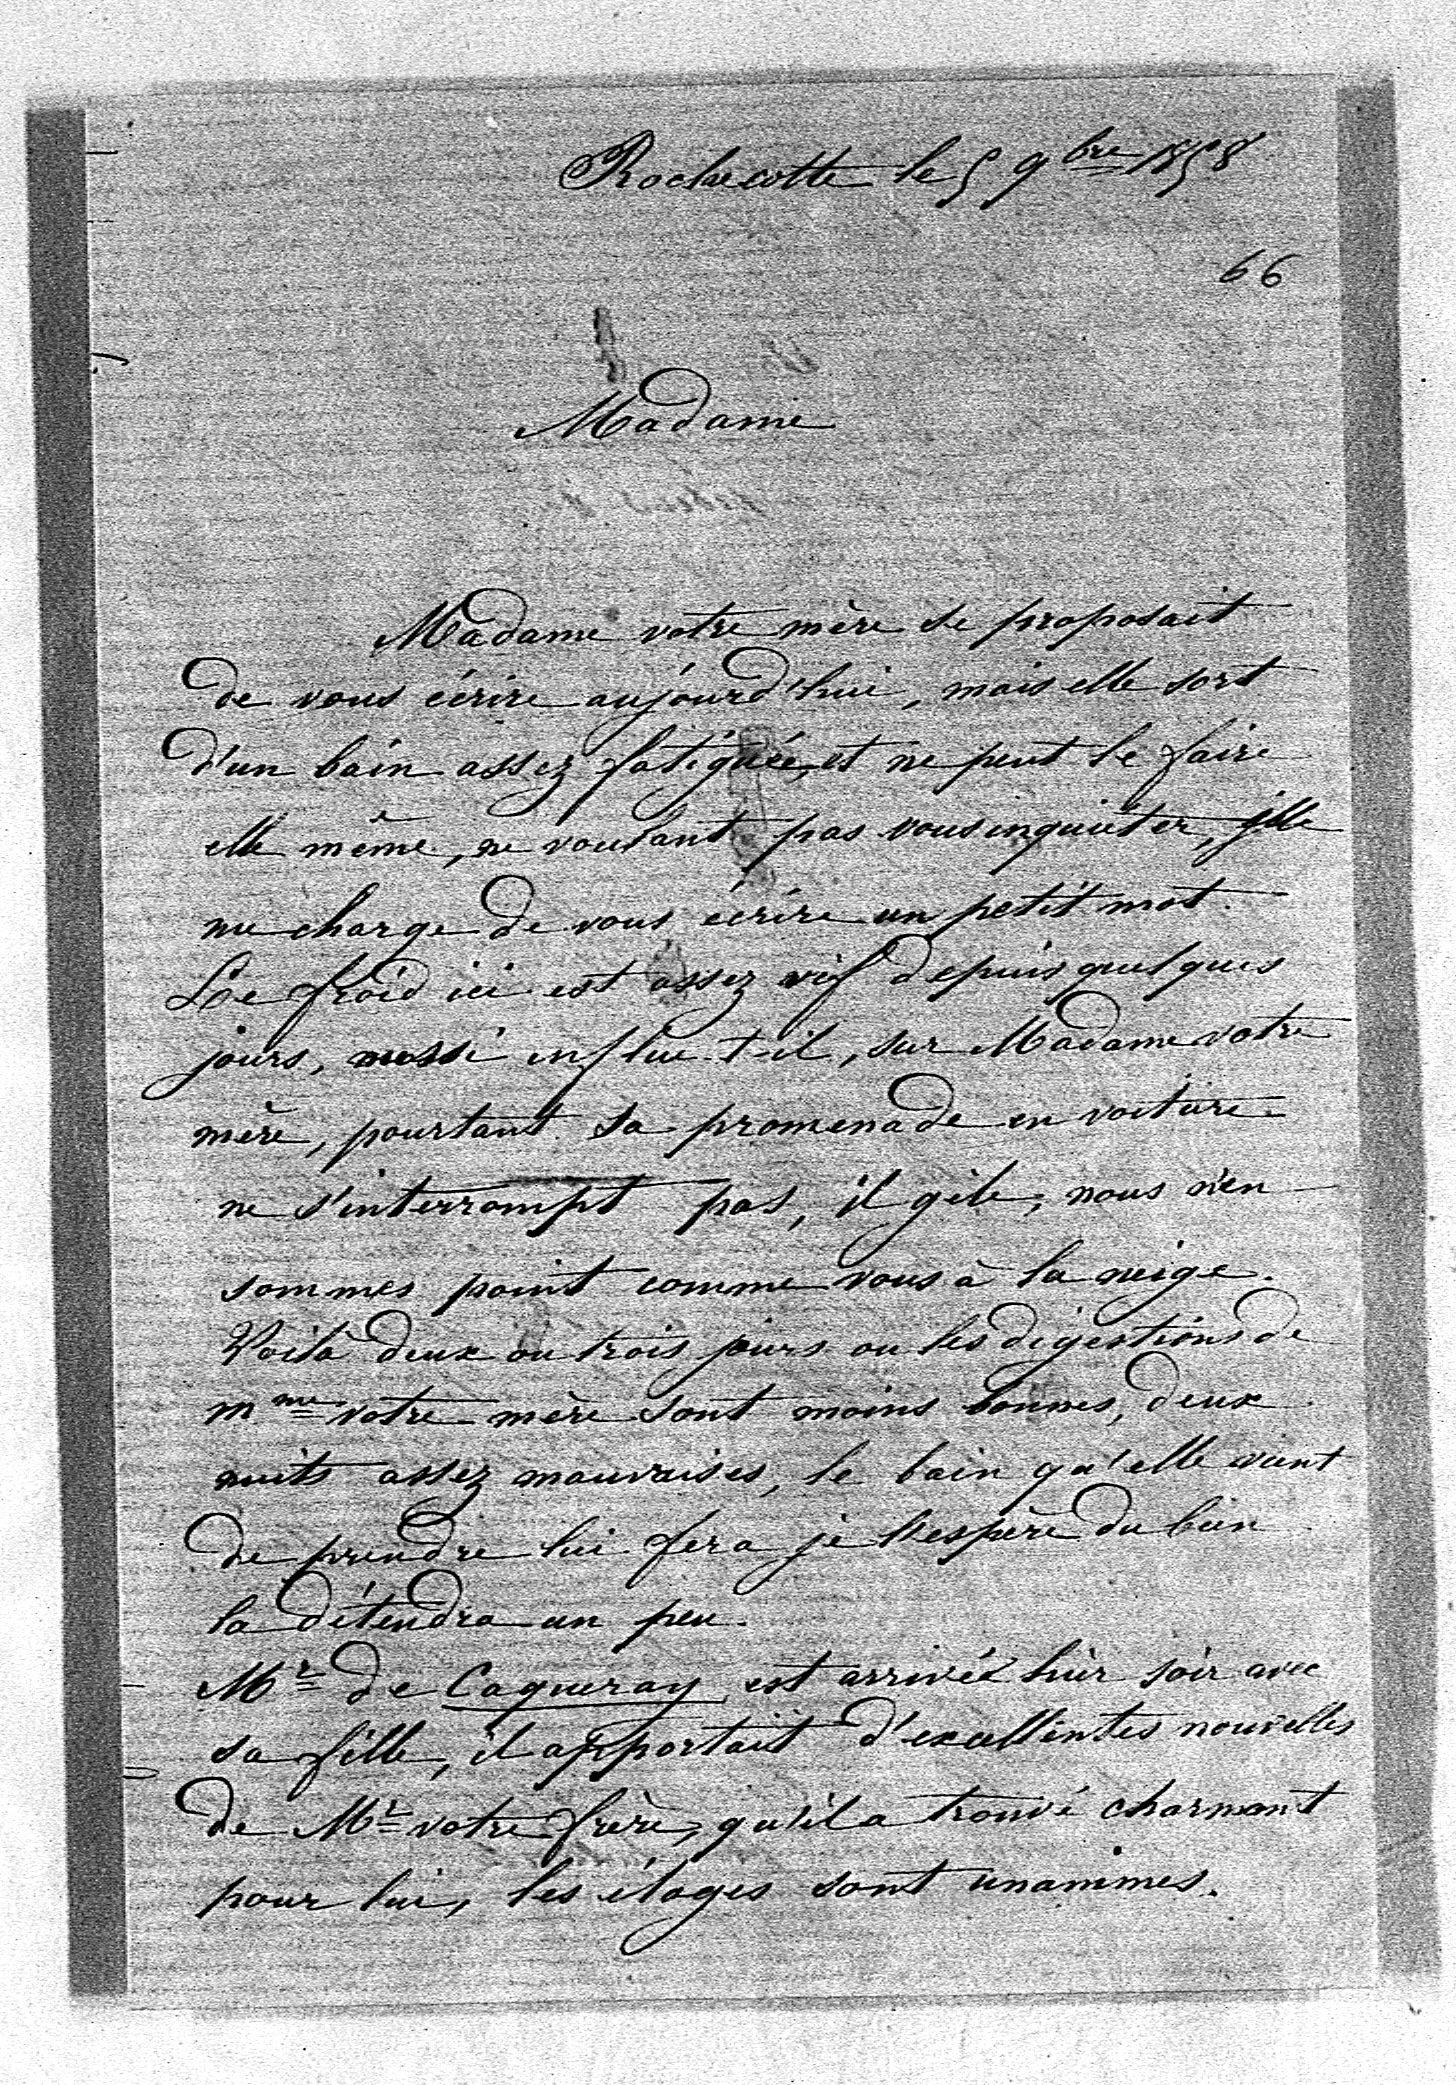 Rochecotte le 5 9bre 1858
66
Madame
Madame votre mère se proposait
de vous écrire aujourd'hui, mais elle sort
d'un bain assez fatiguée, et ne peut le faire
elle même, ne voulant pas vous inquiéter, elle
me charge de vous écrire un petit mot.
Le froid ici est assez vif depuis quelques
jours, aussi influe-t-il, sur Madame votre
mère, pourtant sa promenade en voiture
ne s'interrompt pas, il gèle, nous n'en
sommes point comme vous à la neige.
Voilà deux ou trois jours ou les digestions de
mme votre mère sont moins bonnes, deux
nuits assez mauvaises, le bain qu'elle vient
de prendre lui fera je l'espère du bien
la détendra un peu.
Mr de Caqueray est arrivé hier soir avec
sa fille, il apportait d'excellentes nouvelles
de Mr votre frère, qu'il a trouvé charmant
pour lui, les éloges sont unanimes.